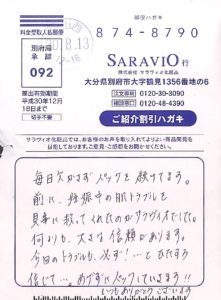 料金受取人払郵便
郵便ハガキ
別府局
承認
092
8.13
12-18
874-8790
差出有効期間
平成30年12月
18日まで
切手不要
SARAVIO 行
株式会社 サラヴィオ化粧品
大分県別府市大字鶴見1356番地の6
注文専用 0120-30-3090
相談窓口 0120-48-4390
ご紹介割引ハガキ
サラヴィオ化粧品では、お客様のお声を取り入れてよりよい商品開発を
目指しております。ご意見・ご感想をお聞かせください。
毎日欠かさずパックを続けてます。
前に、妊娠中の肌トラブルを
見事に救ってくれたのがサラヴィオでした。
何よりも、大きな信頼があります。
今回のトラブルも、必ず!…と
信じて…、めげずにパックしています!!
いつもありがとうございます